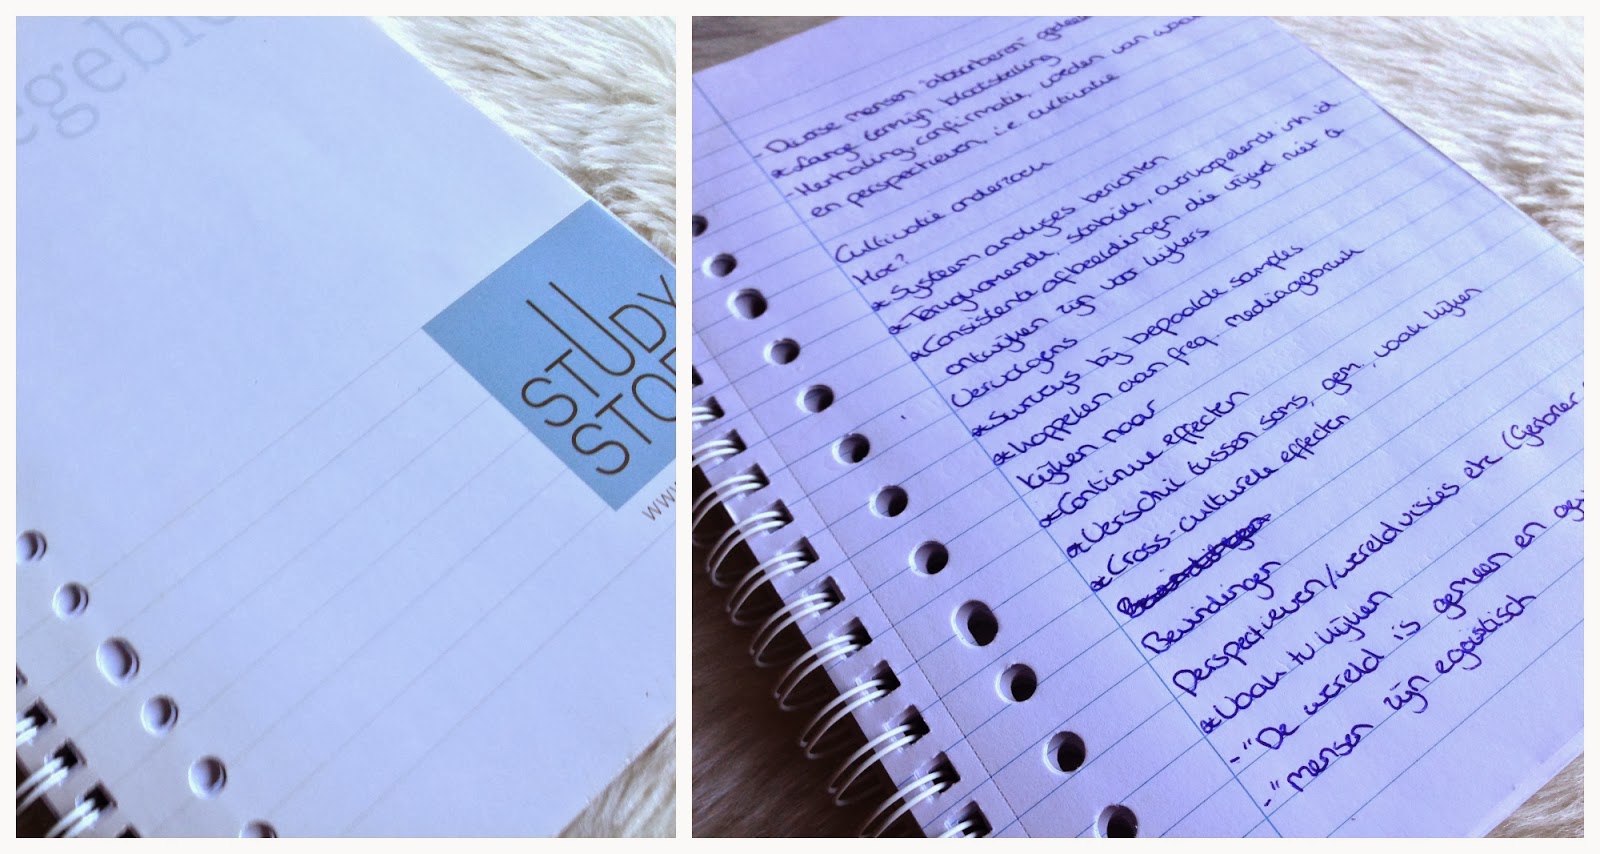 egeblo
STUDY
STO
www
- Diverse mensen "absorberen"
* Lange termijn blootstelling
- Herhaling, confirmatie, voeden van
en perspectieven, i.e. cultivatie
Cultivatie onderzoek
Hoe?
* Systeem analyses berichten
* Terugkomende, stabiele, overkoepelende
* Consistente afbeeldingen die vrijwel niet
ontwijken zijn voor kijkers
Vervolgens
* Surveys bij bepaalde samples
* Koppelen aan freq. mediagebruik
Kijken naar
* Continue effecten
* Verschil tussen soms, gem., vaak kijken
* Cross-culturele effecten
Bevindingen
Perspectieven/wereldvisies etc (Gerbner
* Vaak tv kijken
- "De wereld is gemeen en
- "Mensen zijn egoïstisch